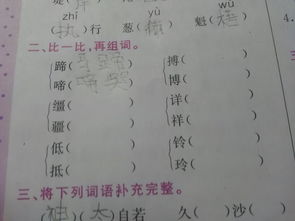 zhí yù wú
(执)行 葱() 魁()
二、比一比,再组词。
蹄(马蹄) 搏( )
啼(啼哭) 博( )
缰( ) 详( )
疆( ) 祥( )
低( ) 铃( )
抵( ) 玲( )
三、将下列词语补充完整。
(神)(态)自若 久( )沙( )